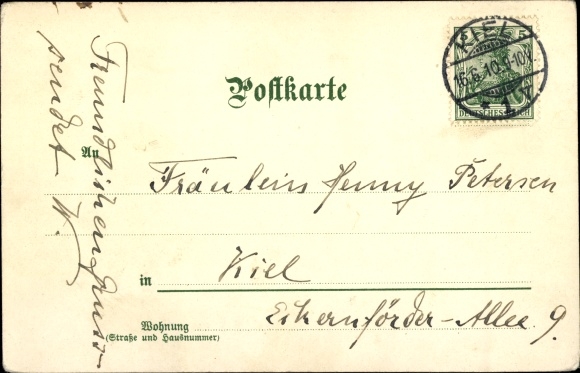 Postkarte
KIEL
16.6.10.
DEUTSCHES REICH
An
Fräulein Henny Petersen
in Kiel
Wohnung
(Straße und Hausnummer)
Eckernförder-Allee 9.
Freundlichen Gruss
sendet W.